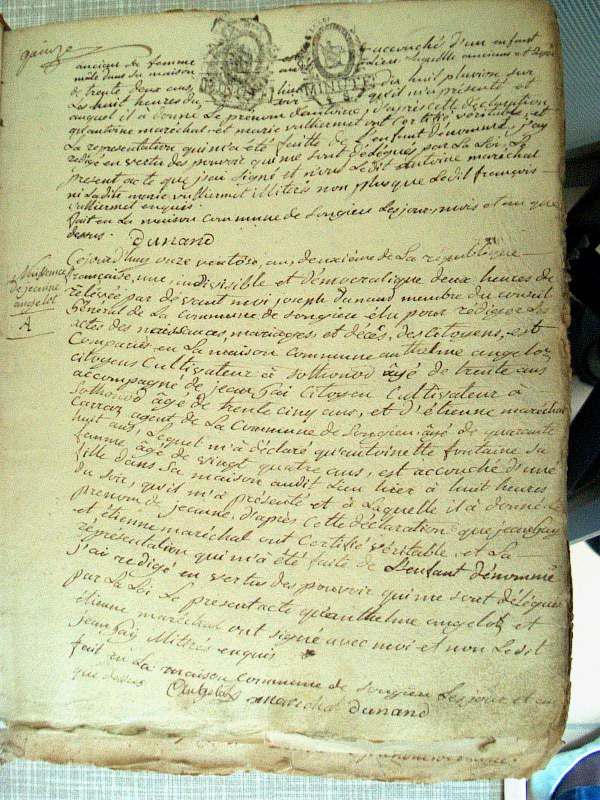 quinze
accouché d'un enfant
mâle dans sa maison
de trente deux ans
MINUTE MINUTE
Les huit heures du
qu'il m'a présenté et
auquel il a donné Le prenom d'antoine, d'après cette déclaration
qu'antoine maréchal et marie vulliermet ont Certifié véritable, et
La représentation qui m'a été faitte de L'enfant dénommé, J'ay
redigé en vertus des pouvoir qui me sont délégués par La Loi, Le
present acte que j'ai signé et non Ledit Antoine maréchal
ni Ladite marie vulliermet illitrés non plus que Ledit françois
vulliermet enquis
fait en La maison Commune de Songieu Les jour, mois et an que
dessus. Dunand
Naissance
de jeanne
angelot
A
Cejourdhuy onze ventose, an deuxieme de La république
française, une, indivisible et démocratique deux heures de
rélévée par dévant moi joseph dunand membre du conseil
Général de La Commune, de Songieu élu pour rédiger Les
actes des naissances, mariages et décès, des Citoyens, est
Comparu en La maison Commune anthelme angeloz
citoyens Cultivateur à Sothonod âgé de trente ans
accompagné de jean fai Citoyen Cultivateur à
Sothonod âgé de trente cinq ans, et d'étienne maréchal
Carraz agent de La Commune de Songieu âgé de quarante
huit ans, Lequel m'a déclaré qu'antoinette fontaine sa
famme âgé de vingt quatre ans, est accouché d'une
fille dans Sa maison audit Lieu hier à huit heures
du Soir, qu'il m'a présenté et à Laquelle il a donné Le
prenom de jeanne, d'après Cette déclaration que jean fai
et étienne maréchal ont Certifié véritable, et La
réprésentation qui m'a été faite de L'enfant dénommé
j'ai redigé en vertus des pouvoir qui me sont délégués
par La Loi Le présent acte qu'anthelme angelotz et
étienne maréchal ont signé avec moi et non Ledit
jean fai illitrés enquis
fait en La maison Commune de Songieu Les jour et an
que dessus Angelotz maréchal Dunand